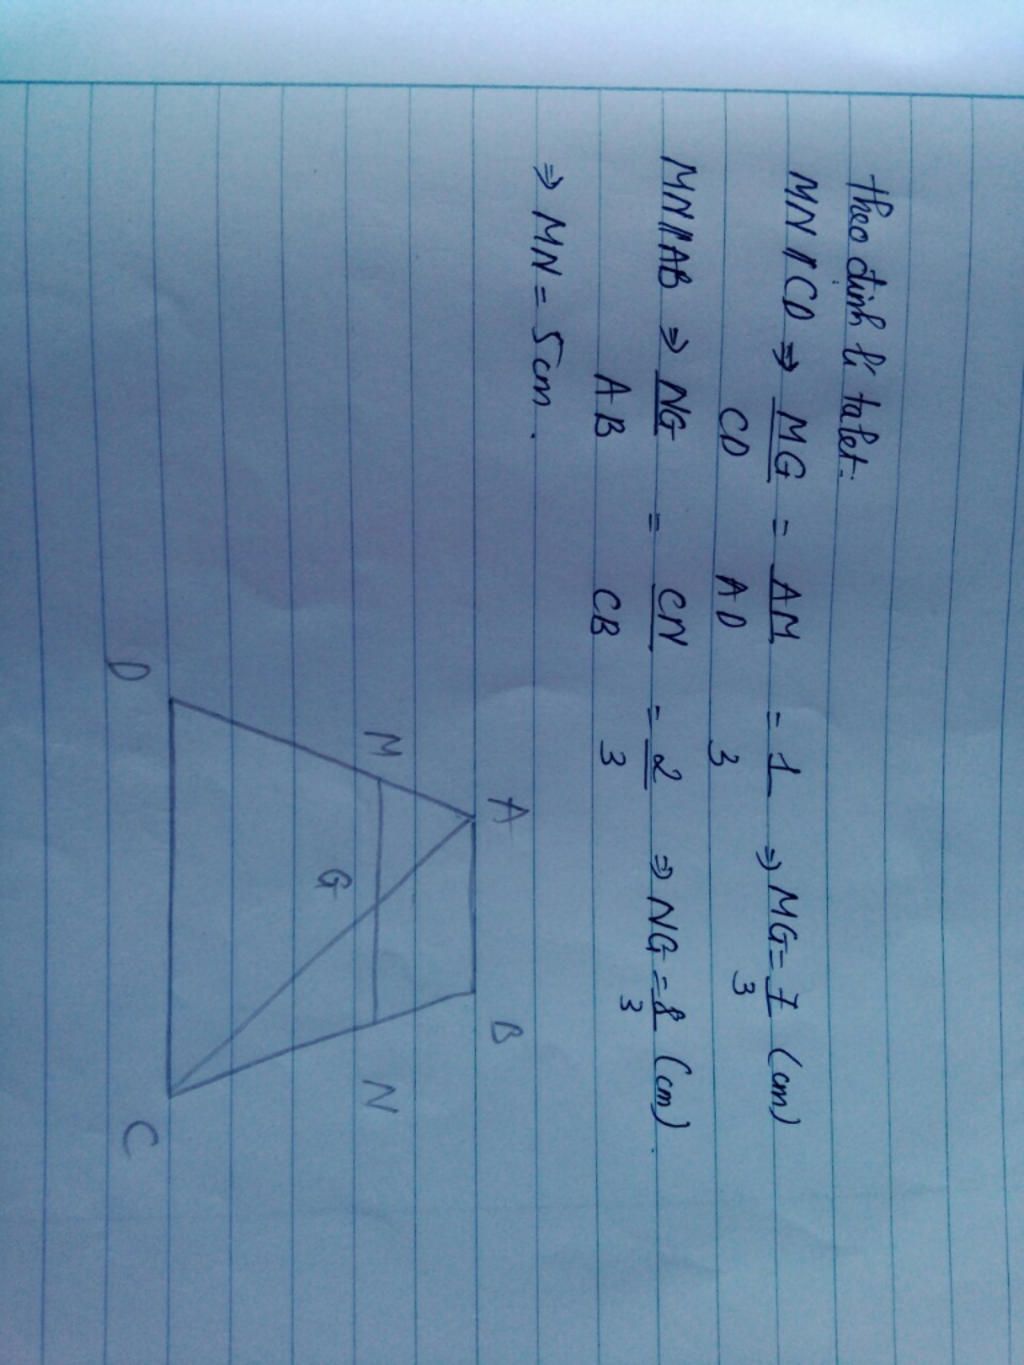 Theo định lí talet.
MN // CD ⇒ MG/CD = AM/AD = 1/3 ⇒ MG = 7/3 (cm)
MN // AB ⇒ NG/AB = CN/CB = 2/3 ⇒ NG = 8/3 (cm).
⇒ MN = 5cm.
A B
M G N
D C